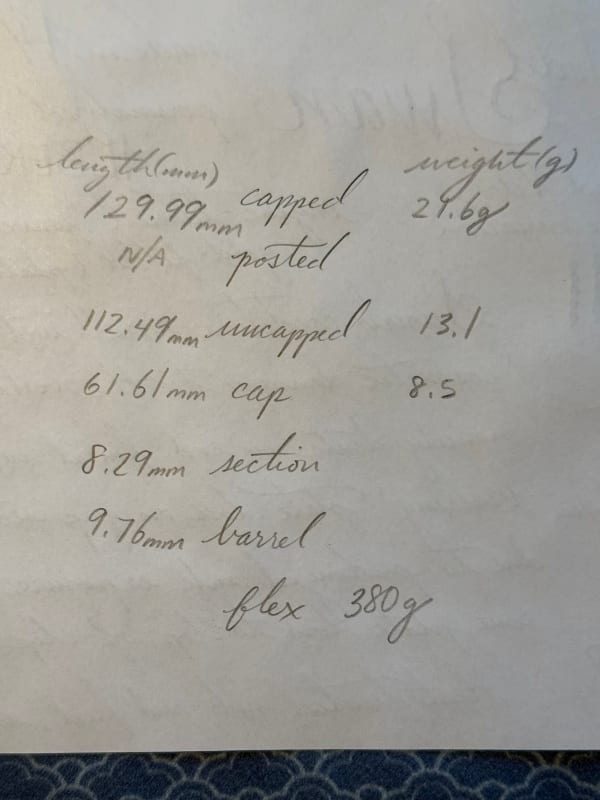 length(mm) weight(g)
129.99mm capped 21.6g
N/A posted
112.49mm uncapped 13.1
61.61mm cap 8.5
8.29mm section
9.76mm barrel
flex 380g